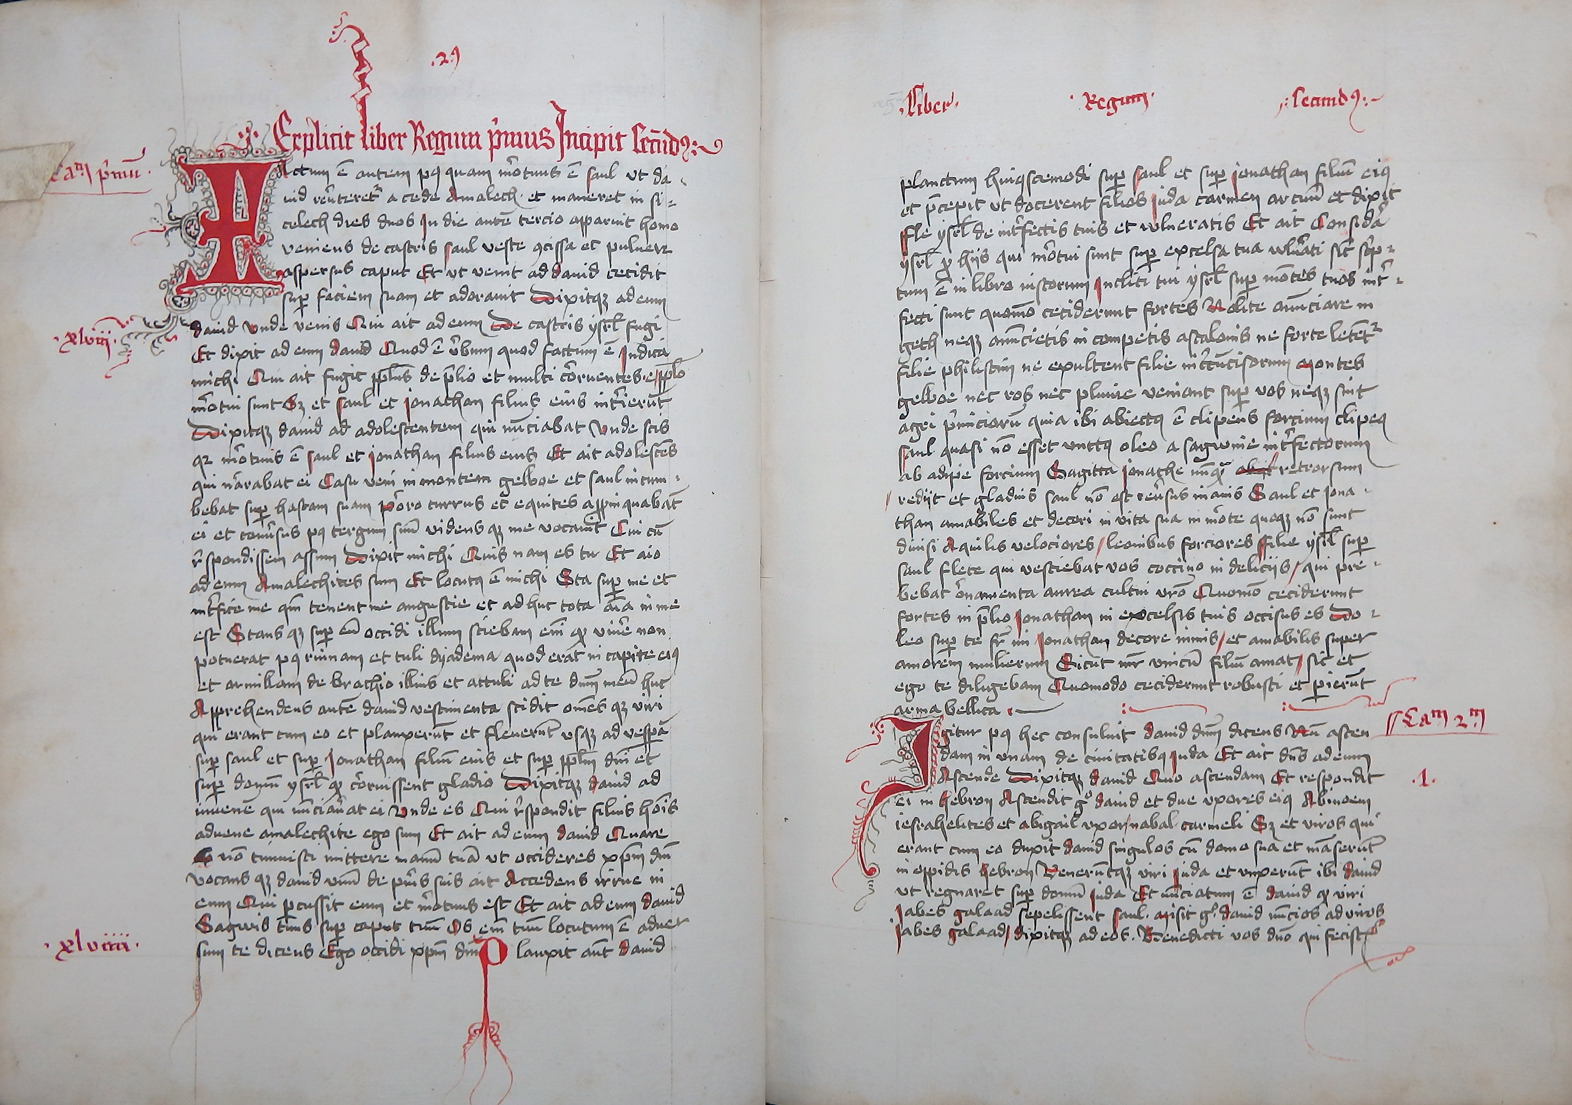 .2.
Explicit liber Regum p̄mus Incipit Secūd9
Ca^m p̄mū
Actum ē autem pq̄ quam m̄ortuus ē saul ut da
uid reūteretr̄ a cede Amalech et maneret in si
celech dies duos In die autē tercio apparuit homo
veniens de castris saul veste 9cissa et puluere
aspersus caput Et ut venit ad dauid cecidit
sup̄ faciem suam et adorauit Dixitqz ad eum
.xlviij.
dauid unde venis Qui ait ad eum De castris ysrł fugi
Et dixit ad eum dauid Quod ē v̄bum quod factum ē Indica
michi Qui ait fugit ppłus de p̄lio et multi corruentes e pplo
m̄ortui sunt Sz et saul et Jonathan filius eius int̄ierūt
Dixitqz dauid ad adolescentem qui nūciabat Unde scis
qz m̄ortuus ē saul et Jonathan filius eius Et ait adolescēs
qui narrabat ei Casu veni in montem gelboe et saul incum
bebat sup̄ hastam suam Porro currus et equites appinquabāt
ei et conūsus pq̄ tergum suū vidensqz me vocauit Cui cū
r̄spondissem assum Dixit michi Quis nam es tu Et aio
ad eum Amalechites sum Et locutq ē michi Sta sup̄ me et
int̄fice me qm̄ tenent me angustie et adhuc tota aīa in me
est Stansqz sup̄ eū occidi illum sciebam eni qz viuē non
potuerat pq̄ ruinam et tuli dyadema quod erat in capite ei9
et armillam de brachio illius et attuli ad te dnm̄ meū huc
Apprehendens autē dauid vestimenta scidit om̄es qz viri
qui erant cum eo et planxerūt et fleuerūt usqz ad vesp̄ā
sup̄ saul et sup̄ Jonathan filium eius et sup̄ ppłm dn̄i et
sup̄ domum ysrł qz corruissent gladio Dixitqz dauid ad
iuuenē qui nūciau̅at ei Unde es Qui r̄spondit filius hoīs
aduene amalechite ego sum Et ait ad eum dauid Quare
nō timuisti mittere manū tuā ut occideres xpm̄ dnī
vocansqz dauid unū de pūis suis ait Accedens irrue in
eum Qui pcussit eum et m̄ortuus est Et ait ad eum dauid
Sagwis tuus sup̄ caput tuū Os eni tuū locutum ē aduer
.xlviiij.
sum te dicens Ego occidi xpm̄ dnī Planxit aūt dauid
Liber Regum Secund9
planctum huiqscemodi sup̄ saul et sup̄ Jonathan filiū ei9
et p̄cepit ut docerent filios Juda carmen arcuū et dixit
Fle ysrł de int̄fectis tuis et vulneratis Et ait Considā
ysrł p̄ hijs qui m̄ortui sunt sup̄ excelsa tua vulnati sic̄ scp̄
tum ē in libro iustorum Incliti tui ysrł sup̄ mōtes tuos int̄
fecti sunt quomō ceciderunt fortes Nolite anūciare in
geth neqz anūncietis in competis ascalonis ne forte letētr̄
filie philistim ne exultent filie in̄cūcisorum Montes
gelboe nec ros nec pluuie veniant sup̄ vos neqz sint
agri p̄miciarū quia ibi abiectq ē clipeus forcium clipeq
saul quasi nō esset unctq oleo a sagwine int̄fectorum
ab adipe forcium Sagitta Jonathe nūqā retrorsum
redijt et gladius saul nō est reūsus inanis Saul et Jona
than amabiles et decori in vita sua in m̄orte quoqz nō sunt
diuisi Aquilis velociores leonibus forciores Filie ysrł sup̄
saul flete qui vestiebat vos coccino in delicijs qui pre
bebat ornamenta aurea cultui vr̄o Quomō ceciderunt
fortes in p̄lio Jonathan in excelsis tuis occisus es Do
leo sup̄ te fr̄ mi Jonathan decore nimis et amabilis super
amorem mulierum Sicut mr̄ unicū filiū amat sic et
ego te diligebam Quomodo ceciderunt robusti et pierūt
arma bellica
Ca^m 2^m
Igitur pq̄ hec consuluit dauid dnm̄ dicens Nū ascen
dam in unam de ciuitatibq Juda Et ait dn̄s ad eum
.1.
Ascende Dixitqz dauid Quo ascendam Et respondit
ei in hebron Ascendit g̊ dauid et due uxores eiq Abinoem
iesrahelites et abigail uxor nabal carmeli Sz et viros qui
erant cum eo duxit dauid singulos cū domo sua et māserūt
in oppidis hebron Venerūtqz viri Juda et unxerūt ibi dauid
ut regnaret sup̄ domū Juda Et nūciatum ē dauid qz viri
Jabes galaad sepelissent saul misit g̊ dauid nūcios ad viros
Jabes galaad dixitqz ad eos. Benedicti vos dn̄o qui fecist